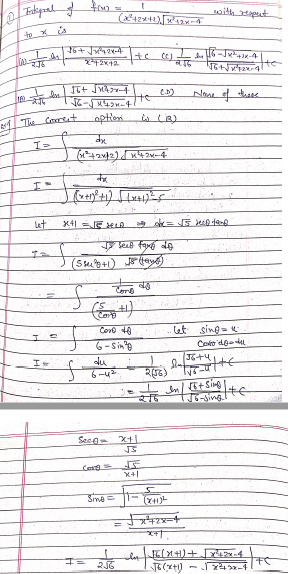 ① Integral of f(x) = 1 / (x²+2x+2)√x²+2x-4 with respect
to x is
(A) 1/2√6 ln |√6 + √x²+2x-4 / x²+2x+2| + c (C) 1/2√6 ln |√6 - √x²+2x-4 / √6 + √x²+2x-4| + c
(B) 1/2√6 ln |√6 + √x²+2x-4 / √6 - √x²+2x-4| + c (D) None of these
The correct option is (B)
I = ∫ dx / (x²+2x+2) √x²+2x-4
I = ∫ dx / ((x+1)²+1) √(x+1)²-5
let x+1 = √5 secθ ⇒ dx = √5 secθ tanθ
I = ∫ √5 secθ tanθ dθ / (5sec²θ+1) √5 (tanθ)
= ∫ 1/cosθ dθ / (5/cosθ + 1)
I = ∫ cosθ dθ / 6 - sin²θ let sinθ = u
cosθ dθ = du
I = ∫ du / 6-u² = 1/2(√6) ln |√6+u / √6-u| + C
= 1/2√6 ln |√6+sinθ / √6-sinθ| + C
Secθ = x+1 / √5
Cosθ = √5 / x+1
Sinθ = √1 - 5/(x+1)²
= √x²+2x-4 / x+1
I = 1/2√6 ln |√6(x+1) + √x²+2x-4 / √6(x+1) - √x²+2x-4| + C